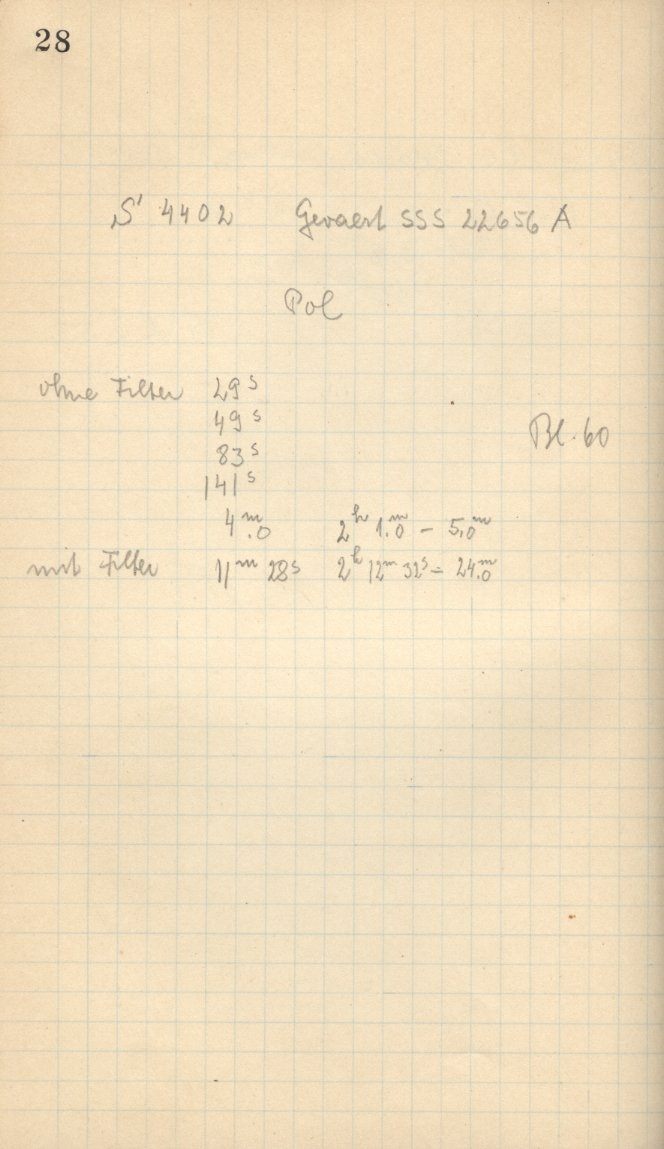 28
S 4402 Gevaert SSS 22656 A
Pol
ohne Filter 29ˢ
49ˢ
Bl. 60
83ˢ
141ˢ
4ᵐ.0 2ʰ 1ᵐ.0 – 5ᵐ.0
mit Filter 11ᵐ 28ˢ 2ʰ 12ᵐ 32ˢ – 24ᵐ.0